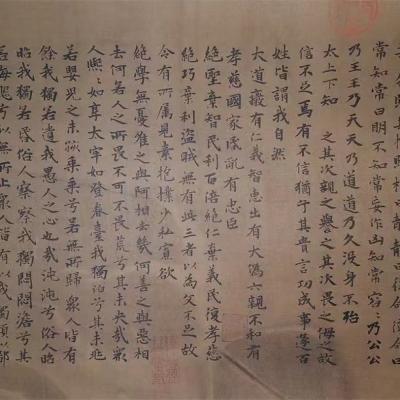 其根歸根曰靜靜曰復命復命曰
常知常曰明不知常妄作凶知常容容乃公公
乃王王乃天天乃道道乃久沒身不殆
太上下知之其次親之譽之其次畏之侮之故
信不足焉有不信猶兮其貴言功成事遂百
姓皆謂我自然
大道廢有仁義智惠出有大偽六親不和有
孝慈國家昏亂有忠臣
絕聖棄智民利百倍絕仁棄義民復孝慈
絕巧棄利盜賊無有此三者以為文不足故
令有所屬見素抱樸少私寡欲
絕學無憂唯之與阿相去幾何善之與惡相
去何若人之所畏不可不畏荒兮其未央哉眾
人熙熙如享太牢如登春臺我獨泊兮其未兆
若嬰兒之未孩乘乘兮若無所歸眾人皆有
餘我獨若遺我愚人之心也哉沌沌兮俗人昭
昭我獨若昏俗人察察我獨悶悶澹兮其
若海飂兮似無所止眾人皆有以我獨頑似鄙